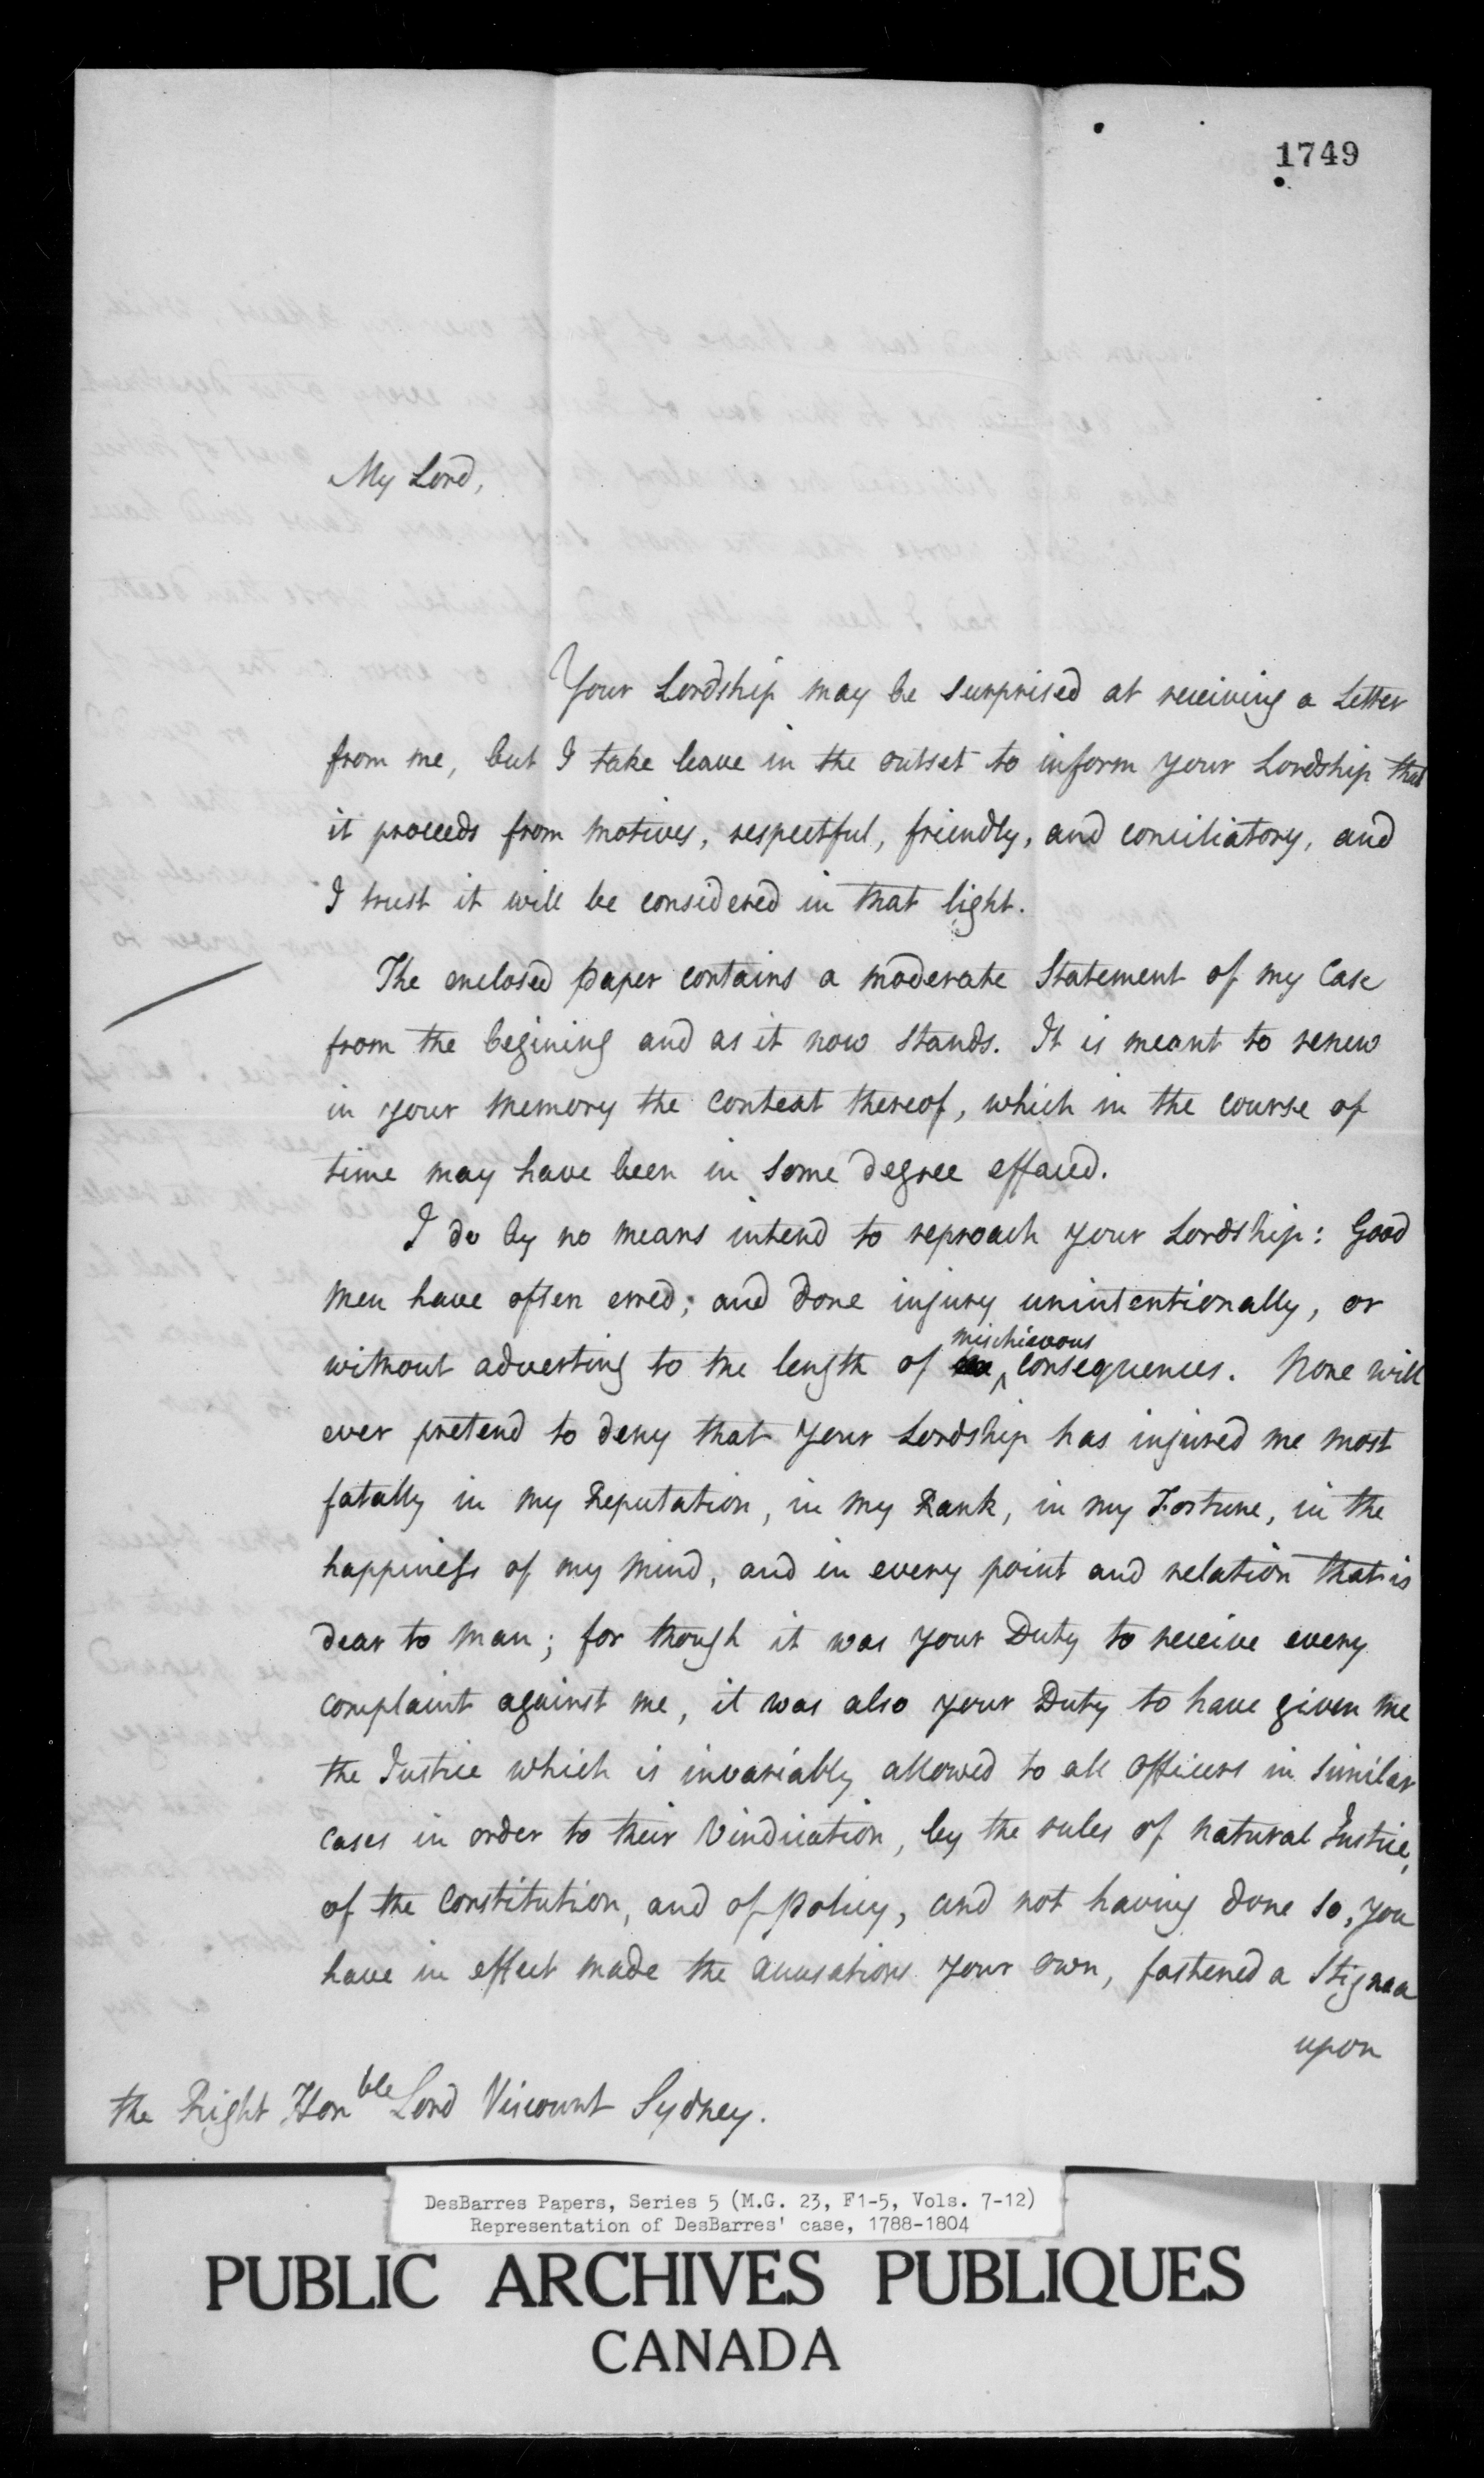 1749
My Lord,
Your Lordship may be surprised at receiving a Letter
from me, but I take leave in the outset to inform your Lordship that
it proceeds from motives, respectful, friendly, and conciliatory, and
I trust it will be considered in that light.
The enclosed paper contains a moderate Statement of my Case
from the begining and as it now stands. It is meant to renew
in your memory the context thereof, which in the course of
time may have been in some degree effaced.
I do by no means intend to reproach your Lordship: Good
men have often erred; and done injury unintentionally, or
mischievous
without adverting to the length of ‸ consequences. None will
ever pretend to deny that your Lordship has injured me most
fatally in my Reputation, in my Rank, in my Fortune, in the
happiness of my mind, and in every point and relation that is
dear to man; for though it was your Duty to receive every
complaint against me, it was also your Duty to have given me
the Justice which is invariably allowed to all officers in similar
cases in order to their Vindication, by the rules of natural Justice,
of the Constitution, and of policy, and not having done so, you
have in effect made the accusations your own, fastened a Stigma
upon
the Right Honble Lord Viscount Sydney.
DesBarres Papers, Series 5 (M.G. 23, F1-5, Vols. 7-12)
Representation of DesBarres' case, 1788-1804
PUBLIC ARCHIVES PUBLIQUES
CANADA